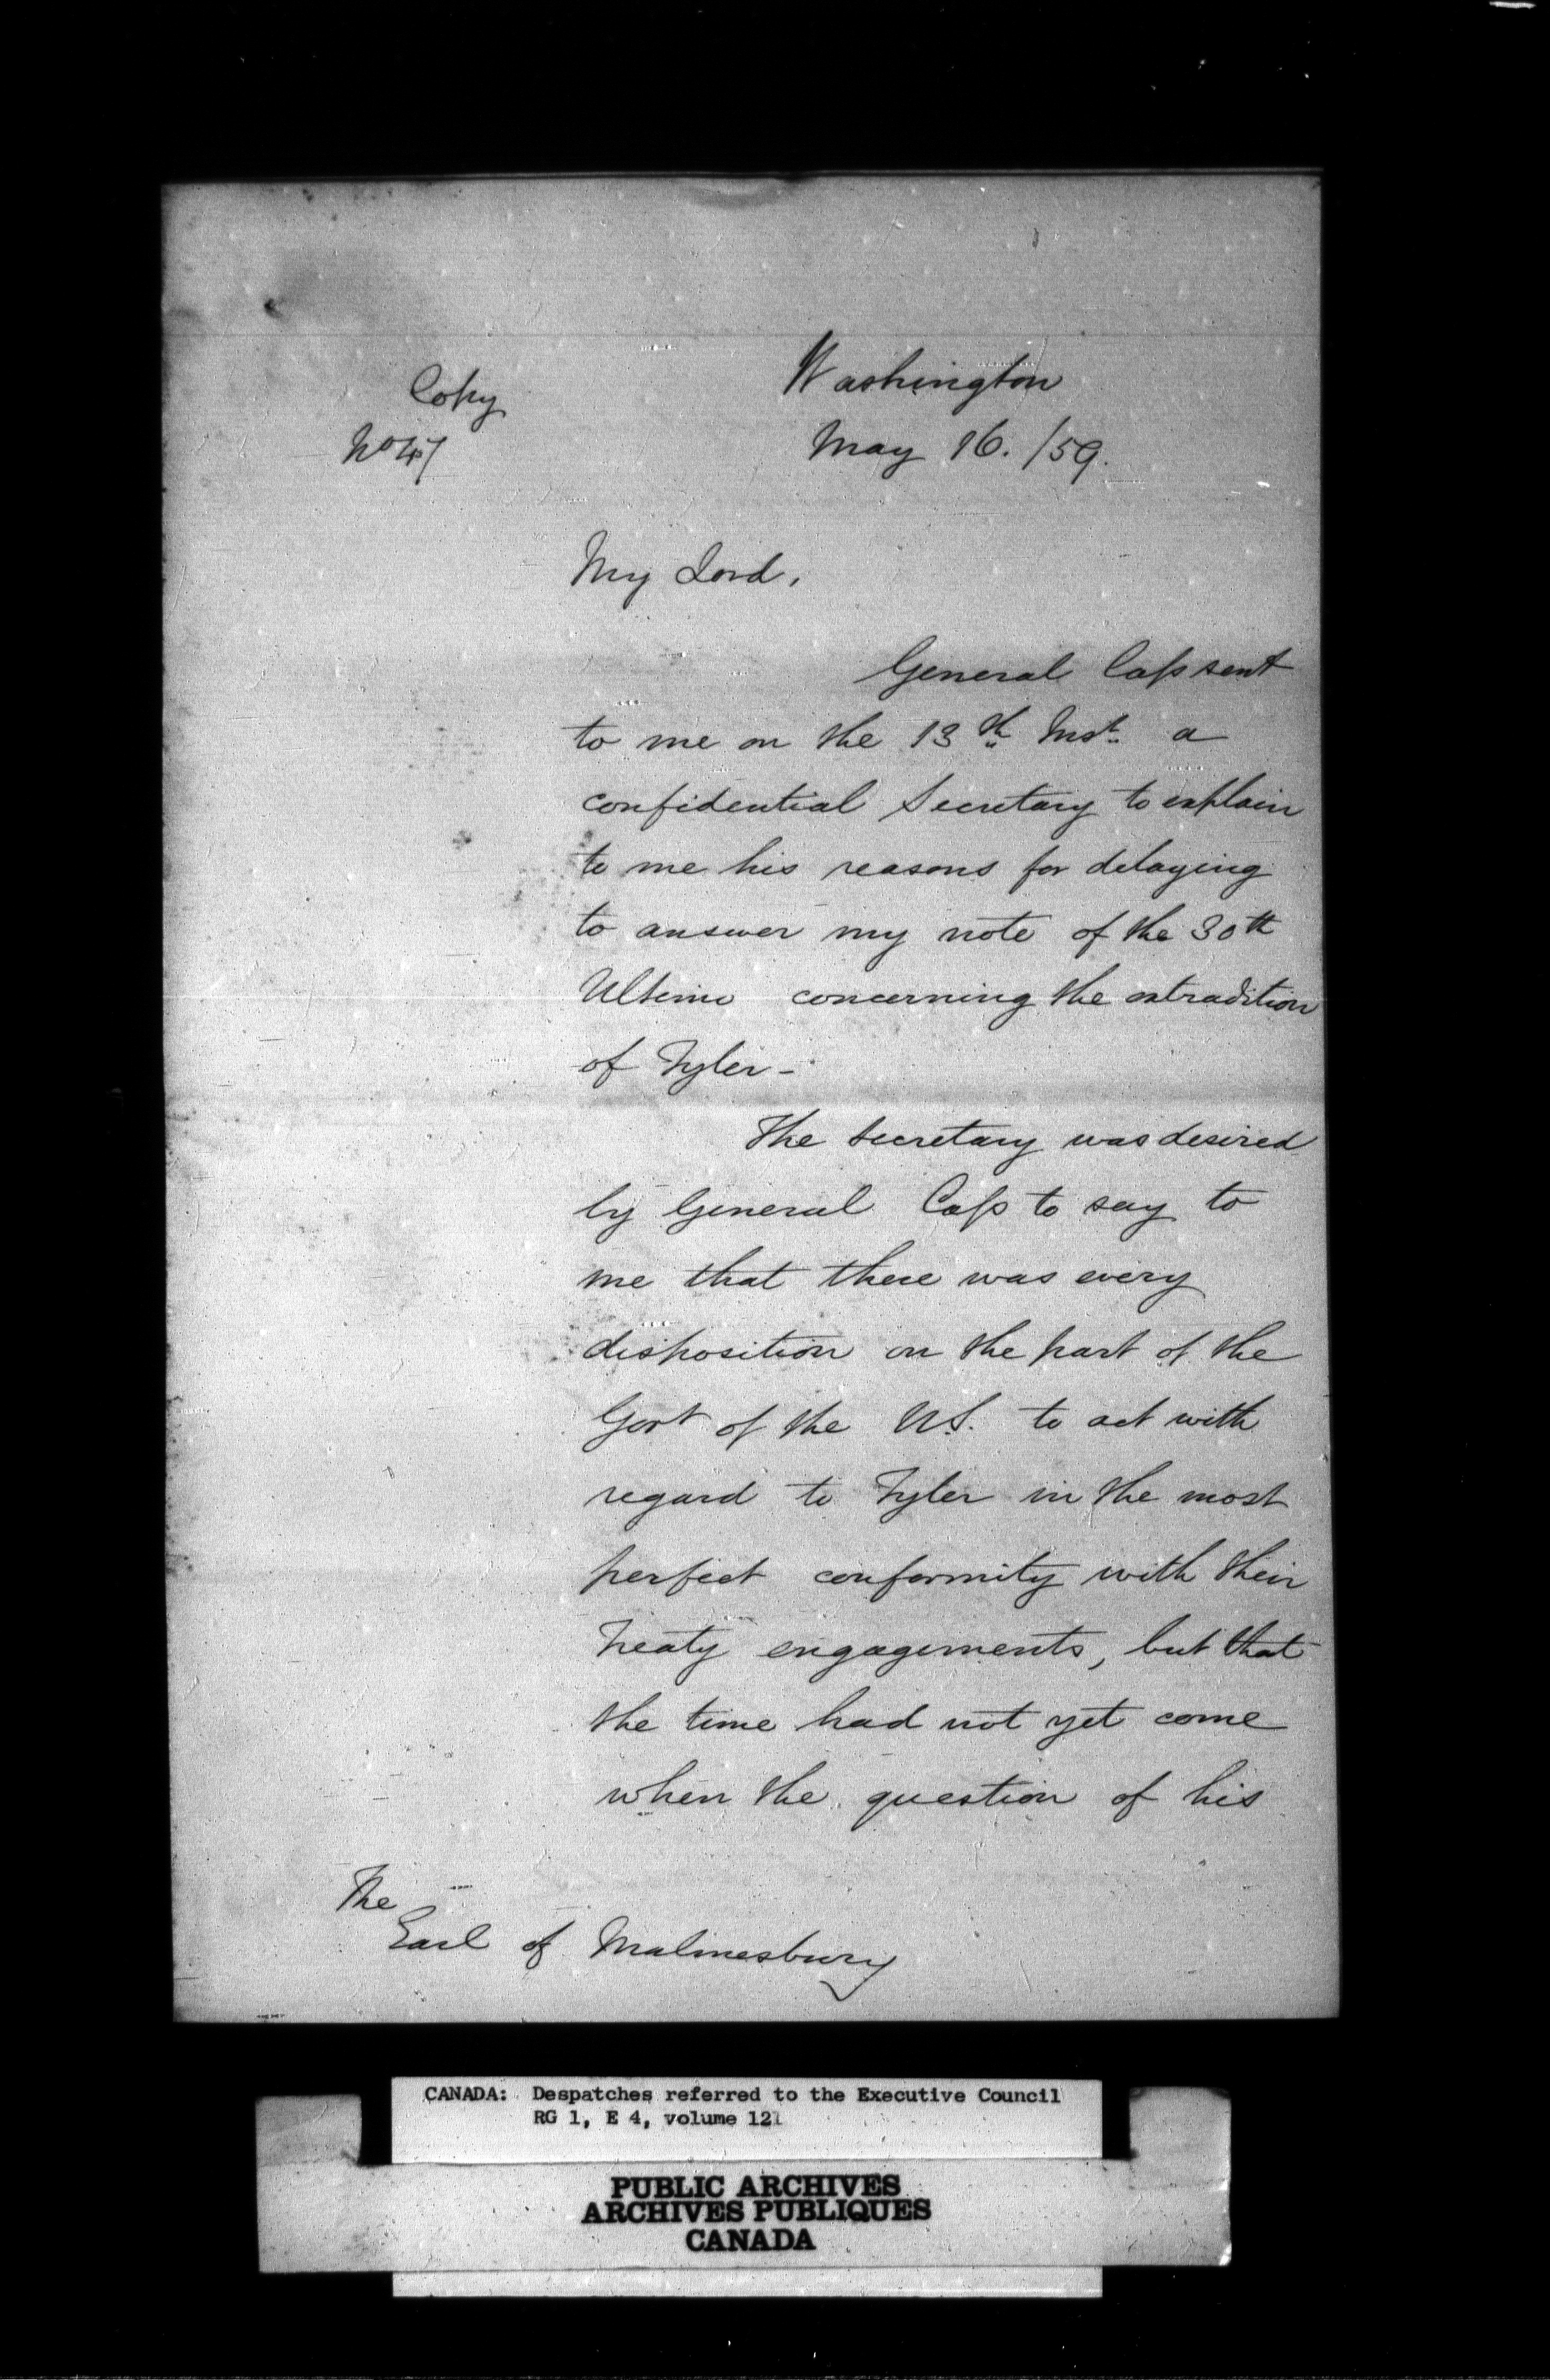 Copy
No 47
Washington
May 16. /59.
My Lord,
General Cass sent
to me on the 13th Inst. a
confidential Secretary to explain
to me his reasons for delaying
to answer my note of the 30th
Ultimo concerning the extradition
of Tyler -
The Secretary was desired
by General Cass to say to
me that there was every
disposition on the part of the
Govt of the U.S. to act with
regard to Tyler in the most
perfect conformity with their
Treaty engagements, but that
the time had not yet come
when the question of his
The
Earl of Malmesbury
CANADA: Despatches referred to the Executive Council
RG 1, E 4, volume 121
PUBLIC ARCHIVES
ARCHIVES PUBLIQUES
CANADA